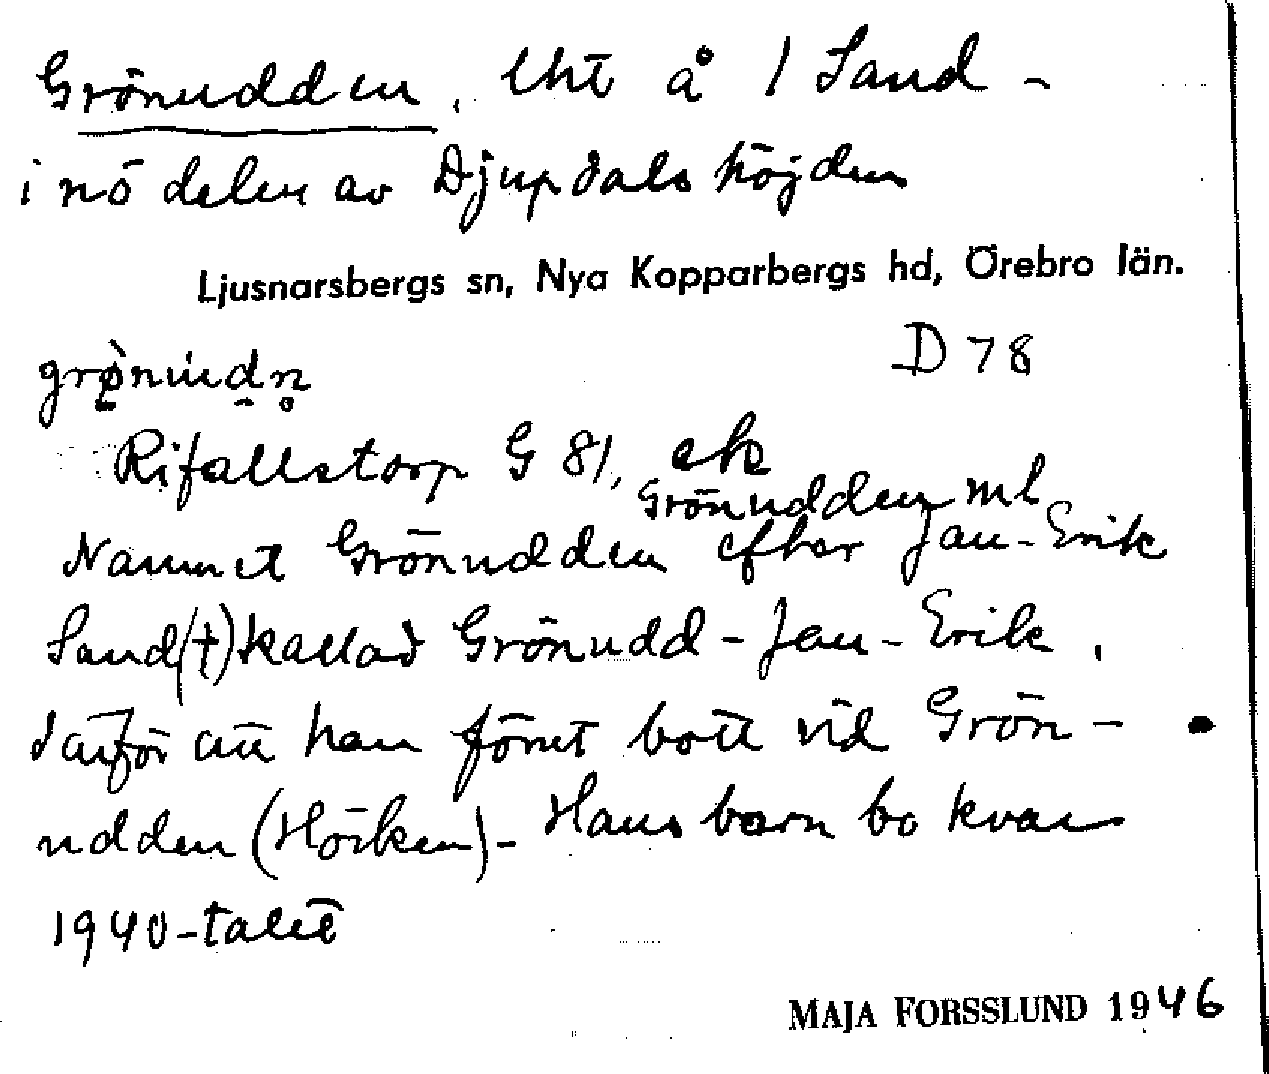 Grönudden, lht å 1 Sand -
i nö delen av Djupdalshöjden
Ljusnarsbergs sn, Nya Kopparbergs hd, Örebro län.
D 78
Rifallstorp G 81, ek
Grönudden ml
Namnet Grönudden efter Jan-Erik
Sand(t) kallad Grönudd-Jan-Erik,
därför att han förut bott vid Grön-
udden (Hörken) - Hans barn bo kvar
1940-talet
MAJA FORSSLUND 1946